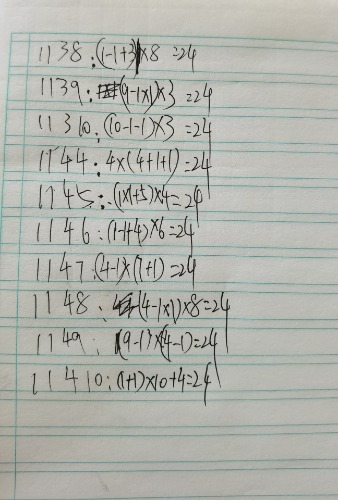 1138:(1-1+3)×8=24
1139:(9-1×1)×3=24
11310:(10-1-1)×3=24
1144:4×(4+1+1)=24
1145:(1×1+5)×4=24
1146:(1-1+4)×6=24
1147:(4-1)×(7+1)=24
1148:(4-1×1)×8=24
1149:(9-1)×(4-1)=24
11410:(1+1)×10+4=24